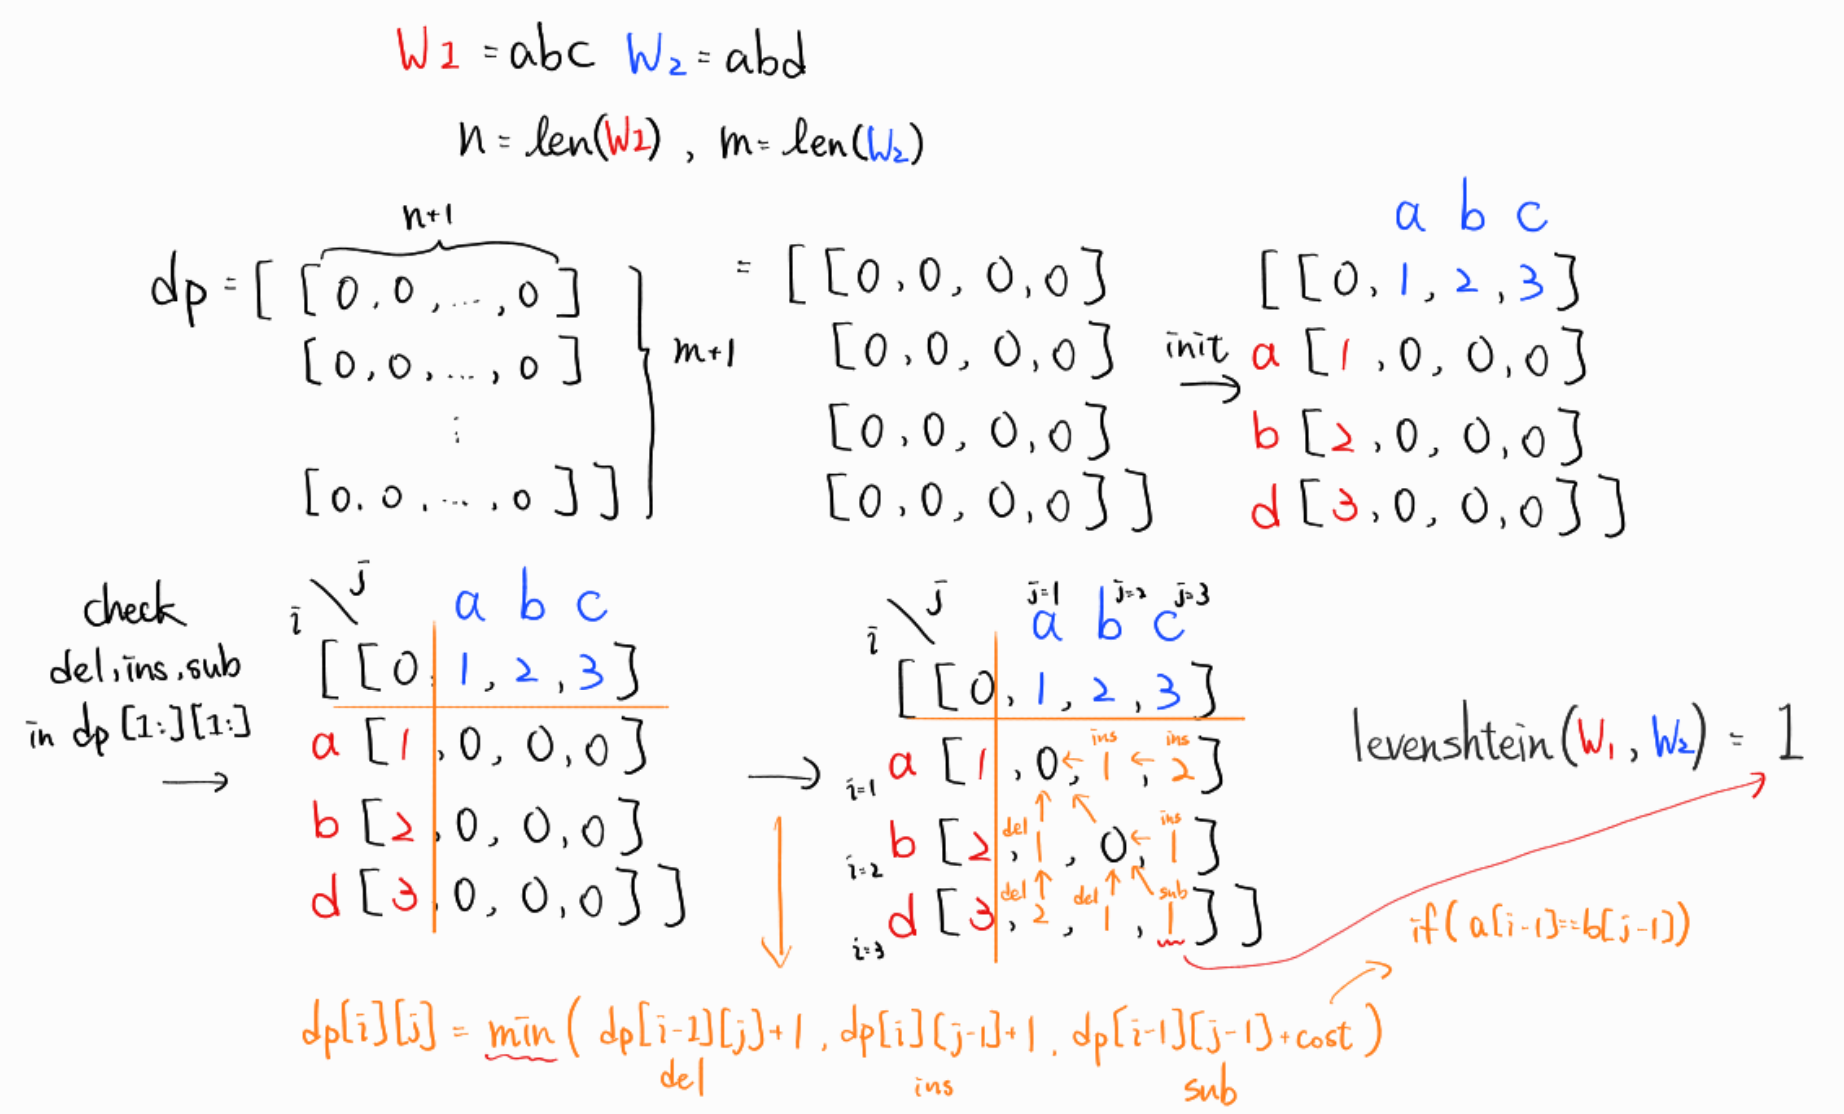 W1 = abc W2 = abd
n = len(W1) , m = len(W2)
n+1
dp = [ [ 0, 0, ..., 0 ]
[ 0, 0, ..., 0 ]
⋮
[ 0, 0, ..., 0 ] ]
m+1
= [ [ 0, 0, 0, 0 ]
[ 0, 0, 0, 0 ]
[ 0, 0, 0, 0 ]
[ 0, 0, 0, 0 ] ]
init
→
a b c
[ [ 0, 1, 2, 3 ]
a [ 1, 0, 0, 0 ]
b [ 2, 0, 0, 0 ]
d [ 3, 0, 0, 0 ] ]
check
del, ins, sub
in dp [1:][1:]
→
i \ j a b c
[ [ 0, 1, 2, 3 ]
a [ 1, 0, 0, 0 ]
b [ 2, 0, 0, 0 ]
d [ 3, 0, 0, 0 ] ]
→
j=1 j=2 j=3
i \ j a b c
[ [ 0, 1, 2, 3 ]
ins ins
i=1 a [ 1, 0, ← 1, ← 2 ]
del ins
i=2 b [ 2, 1, 0, ← 1 ]
del del sub
i=3 d [ 3, 2, 1, 1 ] ]
levenshtein(W1, W2) = 1
if( a[i-1]==b[j-1])
dp[i][j] = min( dp[i-1][j]+1, dp[i][j-1]+1, dp[i-1][j-1]+cost )
del ins sub